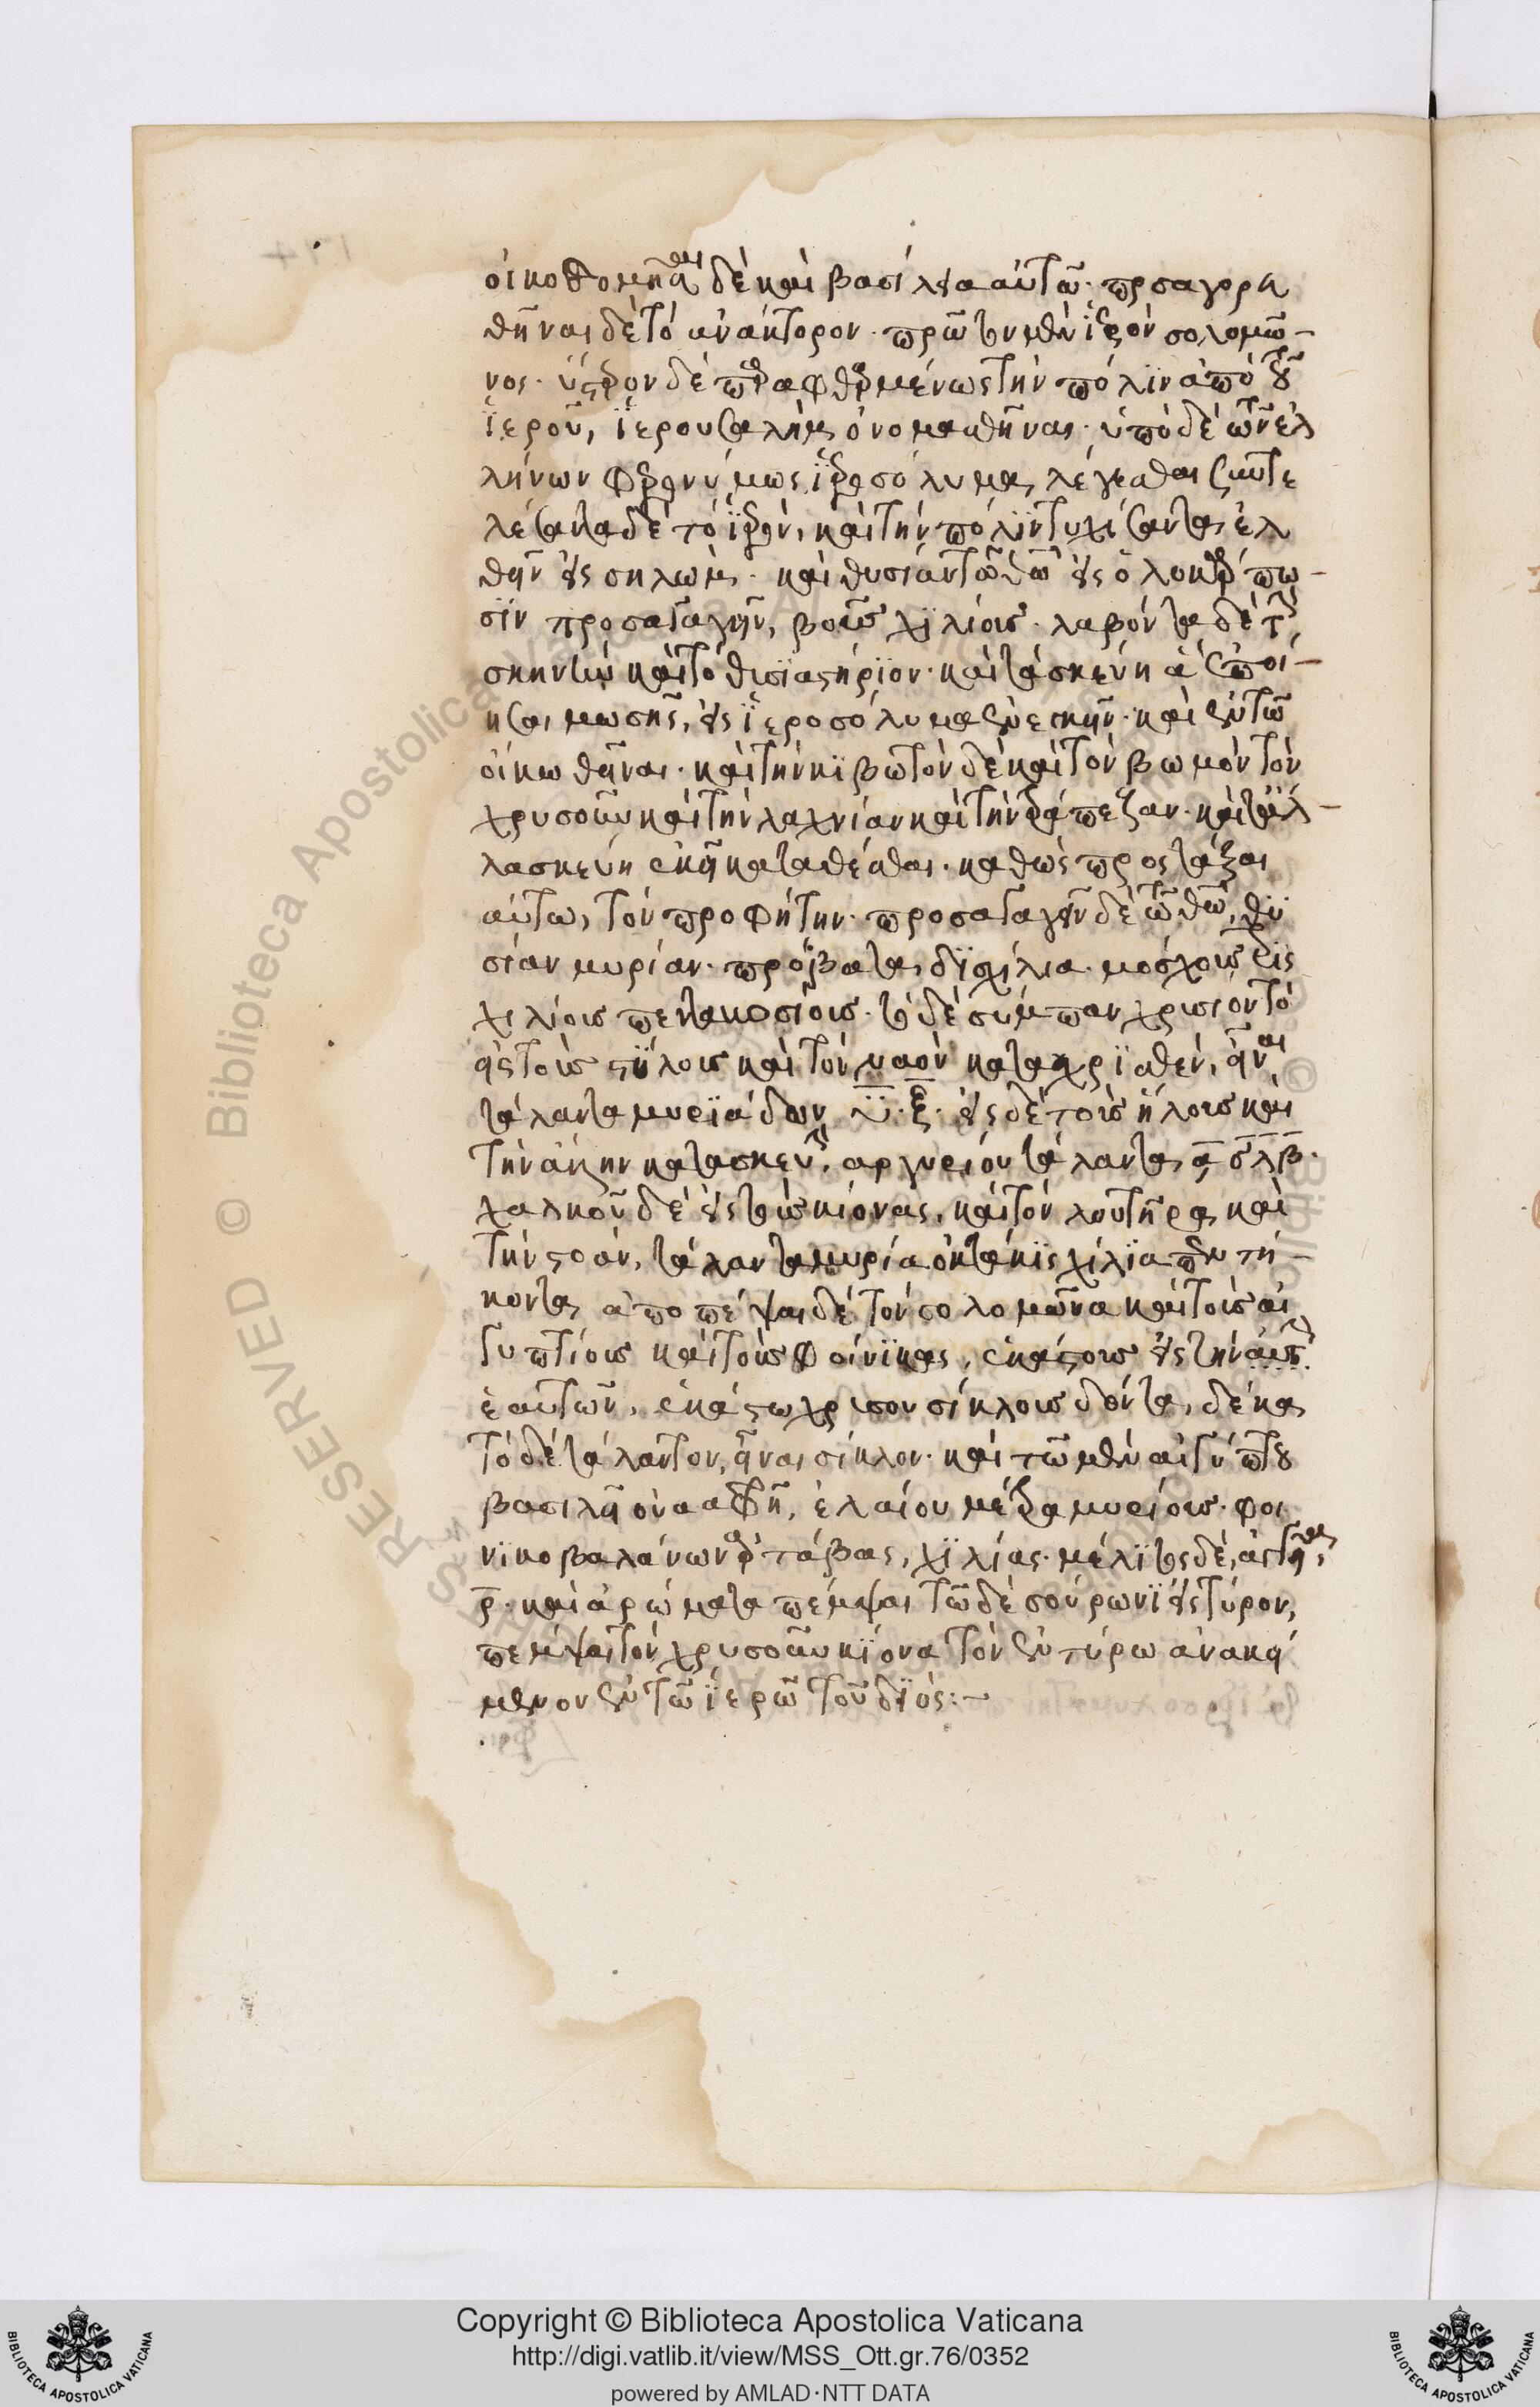 οἰκοδομηθῆναι δὲ καὶ βασίλεια αὐτῶ· προσαγορευ
θῆναι δὲ τὸ ἀνάκτορον· πρῶτον μὲν ἱερὸν σολομῶ-
νος· ὕστερον δὲ παρεφθαρμένως τὴν πόλϊν ἀπὸ τοῦ
ϊεροῦ, ϊερουσαλὴμ ὀνομασθῆναι· ὑπὸ δὲ τῶν ἑλ
λήνων φερωνύμως ϊεροσόλυμα λέγεσθαι συντε
λέσαντα δὲ τὸ ϊερὸν, καὶ τὴν πόλϊν τειχίσαντα ἐλ
θεῖν εἰς σηλώμ· καὶ θυσίαν τῶ θεῶ εἰς ὁλοκάρπω-
σϊν προσαγαγεῖν, βοῦς χϊλίους· λαβόντα δὲ τὴν
σκηνὴν καὶ τὸ θυσϊαστήρϊον· καὶ τὰ σκεύη ἃ ἐποί-
ησε μωσῆς, εἰς ϊεροσόλυμα ἐνεγκεῖν· καὶ ἐν τῶ
οἴκω θεῖναι· καὶ τὴν κϊβωτὸν δὲ καὶ τὸν βωμὸν τὸν
χρυσοῦν καὶ τὴν λυχνίαν καὶ τὴν τράπεζαν· καὶ τἄλ-
λα σκεύη ἐκεῖ καταθέσθαι· καθὼς προστάξαι
αὐτω, τὸν προφήτην· προσαγαγεῖν δὲ τῶ θεῶ, θυ
σίαν μυρίαν· πρόβατα δϊσχίλια· μόσχους τρὶς
χιλίους πεντακοσίους· τὸ δὲ σύμπαν χρυσίον τὸ
εἰς τοὺς στύλους καὶ τὸν ναὸν καταχρϊσθὲν, εἶναι
τάλαντα μυρϊάδων ῡ· ξ̄· εἰς δὲ τοὺς ἥλους καὶ
τὴν ἄλλην κατασκευὴν, ἀργυρίου τάλαντα ᾱ σ̄ λ̄ β̄·
χαλκοῦ δὲ εἰς τοὺς κίονας, καὶ τὸν λουτῆρα καὶ
τὴν στοὰν, τάλαντα μύρια ὀκτάκϊς χίλϊα πεντή-
κοντα ἀποπέμψαι δὲ τὸν σολομῶνα καὶ τοὺς αἰ
γυπτίους καὶ τοὺς φοίνϊκας, ἑκάστους εἰς τὴν αὐτ
ἑαυτῶν, ἑκάστω χρυσου σίκλους δόντα, δέκα
τὸ δὲ τάλαντον, εἶναι σίκλον· καὶ τῶ μὲν αἰγύπτου
βασιλεῖ οὐαφρῆ, ἐλαίου μέτρα μυρίους· φοι
νϊκοβαλάνων ἀρτάβας, χϊλίας· μέλϊτος δὲ, ἀγγεῖα
ρ̄· καὶ ἀρώματα πέμψαι τῶ δὲ σούρωνϊ εἰς τύρον,
πέμψαι τὸν χρυσοῦν κϊόνα τὸν ἐν τύρω ἀνακεί
μενον ἐν τῶ ϊερῶ τοῦ δϊός:-
Copyright © Biblioteca Apostolica Vaticana
http://digi.vatlib.it/view/MSS_Ott.gr.76/0352
powered by AMLAD·NTT DATA